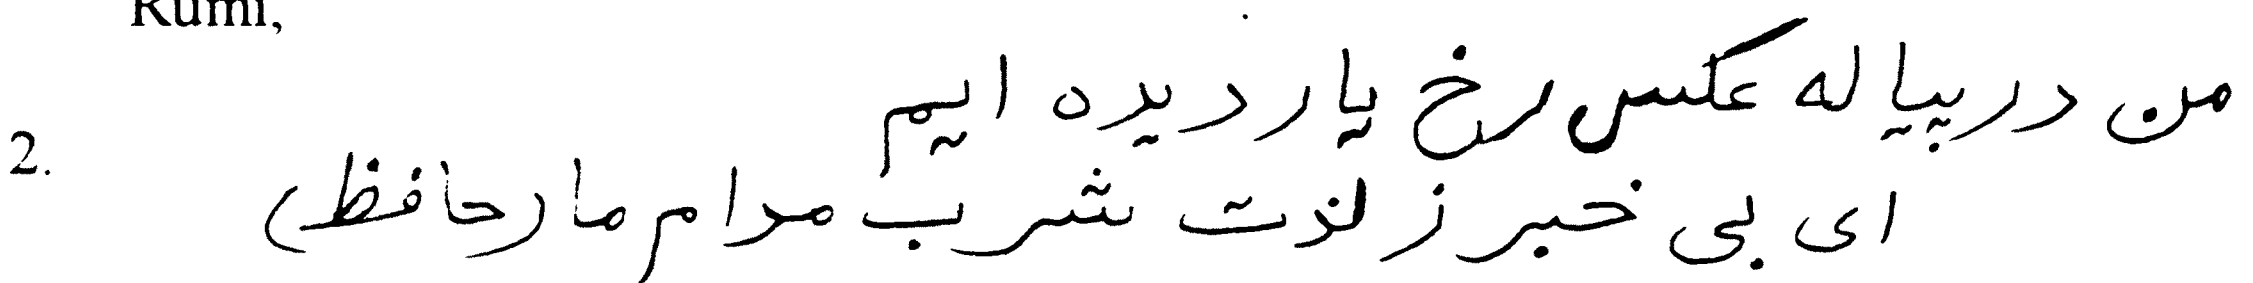 Rumi,
من در پیاله عکس رخ یار دیده ایم
2.
ای بی خبر ز لذت شرب مدام ما (حافظ)